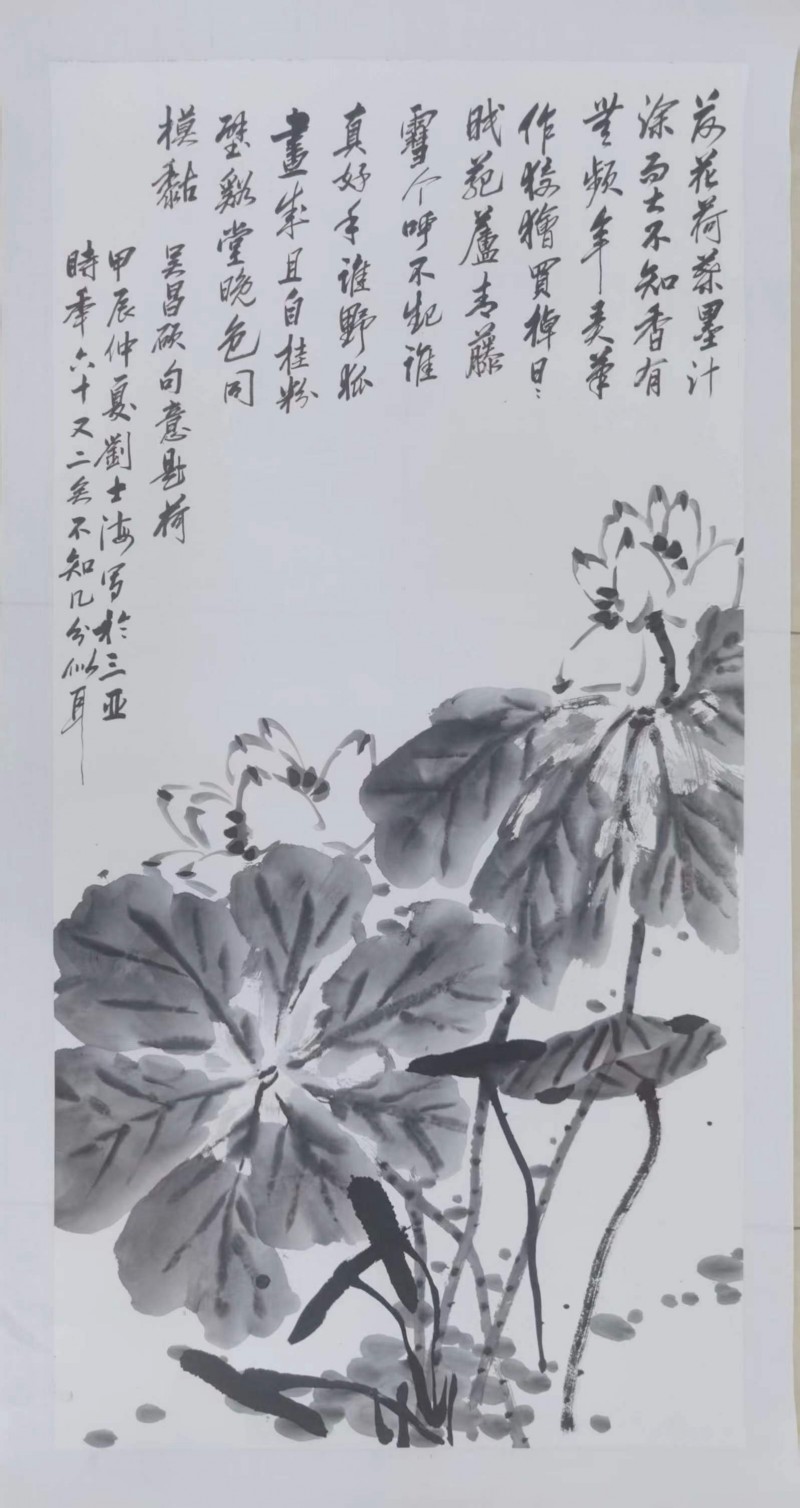 荷花荷葉墨汁
涂雨大不知香有
無頻年弄筆
作狡獪買棹日〻
眠菰蘆青藤
雪个呼不起誰
真好手誰野狐
畫成且自挂粉
壁谿堂晚色同
模黏 吴昌碩句意題荷
甲辰仲夏劉士海写於三亚
時年六十又二矣不知几分似耳